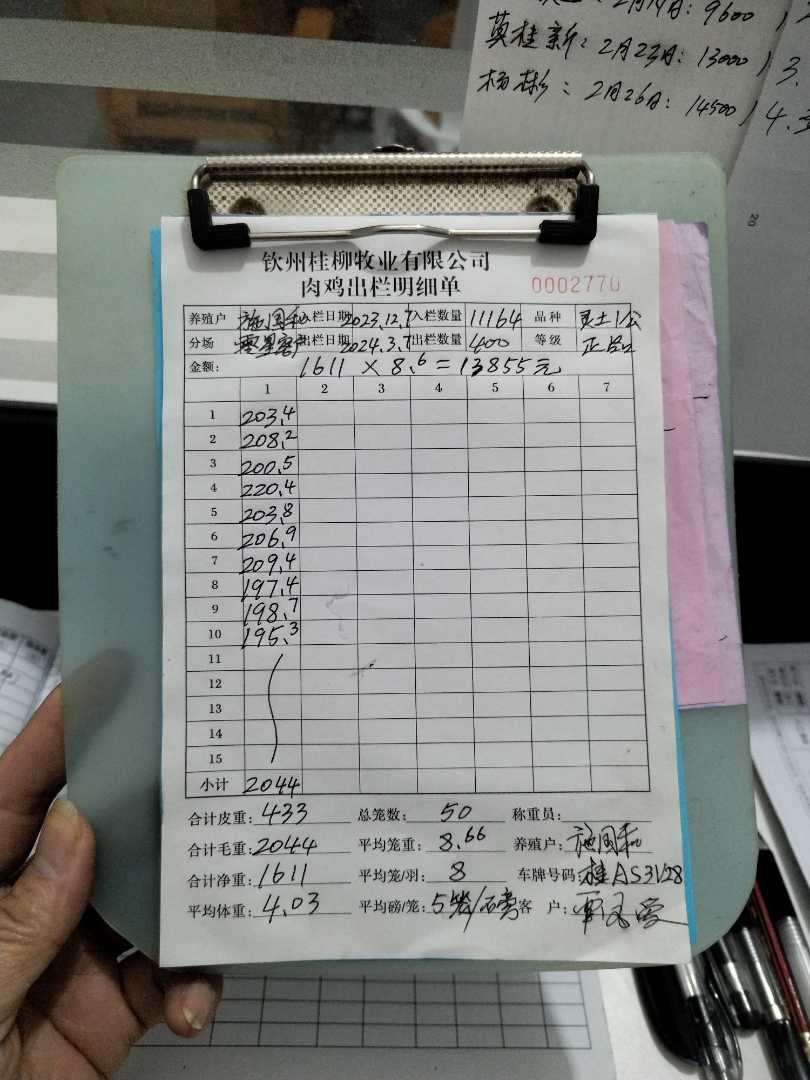 2月14日：9600
莫桂新：2月23日：13000 / 3.
杨彬：2月26日：14500 / 4.
20
钦州桂柳牧业有限公司
肉鸡出栏明细单 0002770
养殖户 施国和 入栏日期 2023.12.1 入栏数量 11164 品种 灵土1/公
分场 出栏日期 2024.3.7 出栏数量 400 等级 正品
金额： 1611 × 8.6 = 13855元
1 2 3 4 5 6 7
1 203.4
2 208.2
3 200.5
4 220.4
5 203.8
6 206.9
7 209.4
8 197.4
9 198.7
10 195.3
11
12
13
14
15
小计 2044
合计皮重：433 总笼数：50 称重员：
合计毛重：2044 平均笼重：8.66 养殖户：施国和
合计净重：1611 平均笼/羽：8 车牌号码：桂AS3V28
平均体重：4.03 平均磅/笼：5笼/磅 客 户：